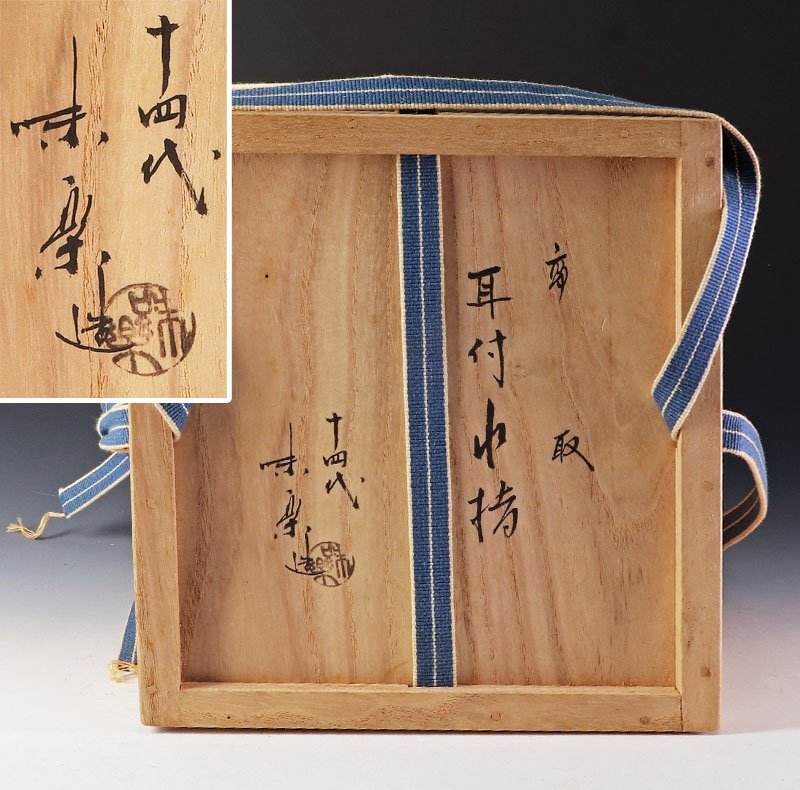 十四代
味楽造
高取
耳付水指
十四代
味楽造